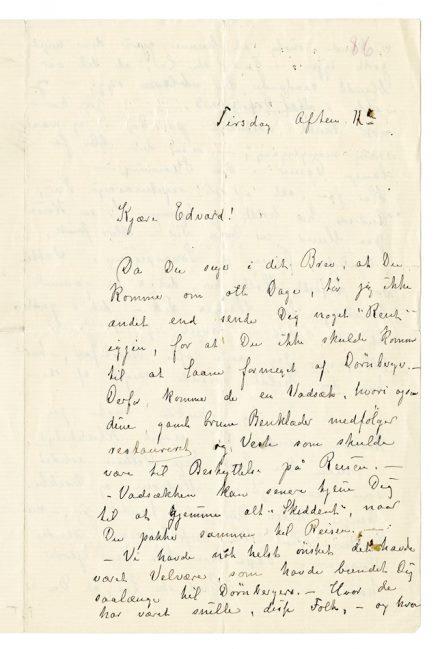 86
Tirsdag Aften
Kjære Edvard!
Da Du siger i dit Brev, at Du
kommer om otte Dage, tør jeg ikke
andet end sende Dig noget "Rent"
igjen, for at Du ikke skulde komme
til at laane formeget af Dörnberger.
Derfor kommer de en Vadsæk, hvori ogsaa
dine, gamle brune Benklæder medfølger
restaureret og Vest som skulde
være til Beskyttelse på Reisen. —
— Vadsækken kan senere tjene Dig
til at gjemme alt "Skiddent", naar
Du pakker sammen til Reisen. —
— Vi havde helst ønsket det havde
været Velvære, som havde bundet Dig
saalænge til Dörnbergers. — Hvor de
har været snille, disse Folk, — og hvor